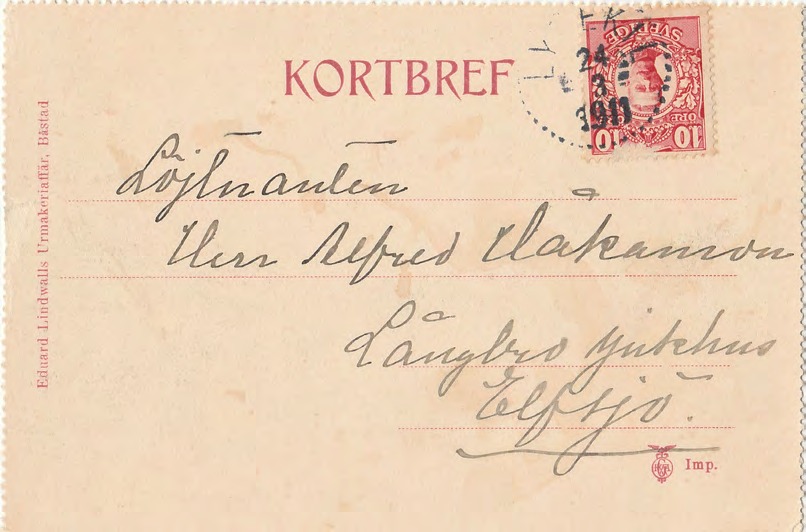 KORTBREF
SVERIGE
10 ÖRE 10
24
3
1911
Löjtnanten
Herr Alfred Håkanson
Långbro sjukhus
Elfsjö.
Imp.
Eduard Lindwalls Urmakeriaffär, Båstad